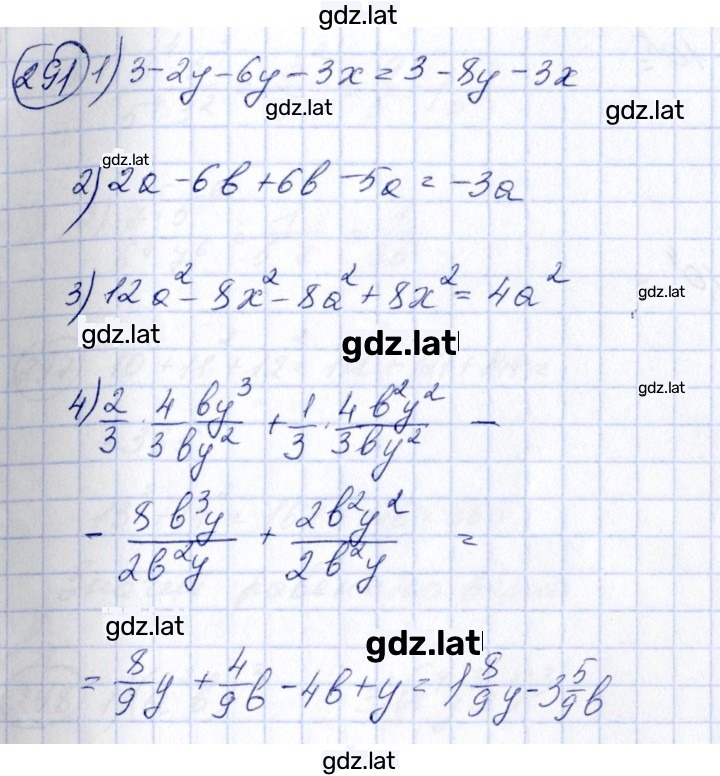 gdz.lat
291 1) 3 - 2y - 6y - 3x = 3 - 8y - 3x
gdz.lat gdz.lat
gdz.lat
2) 2a - 6b + 6b - 5a = -3a
3) 12a² - 8x² - 8a² + 8x² = 4a²
gdz.lat
gdz.lat gdz.lat
gdz.lat
4) 2/3 · 4by³/3by² + 1/3 · 4b²y²/3by² -
- 8b³y/2b²y + 2b²y²/2b²y =
gdz.lat gdz.lat
= 8/9y + 4/9b - 4b + y = 1 8/9y - 3 5/9b
gdz.lat